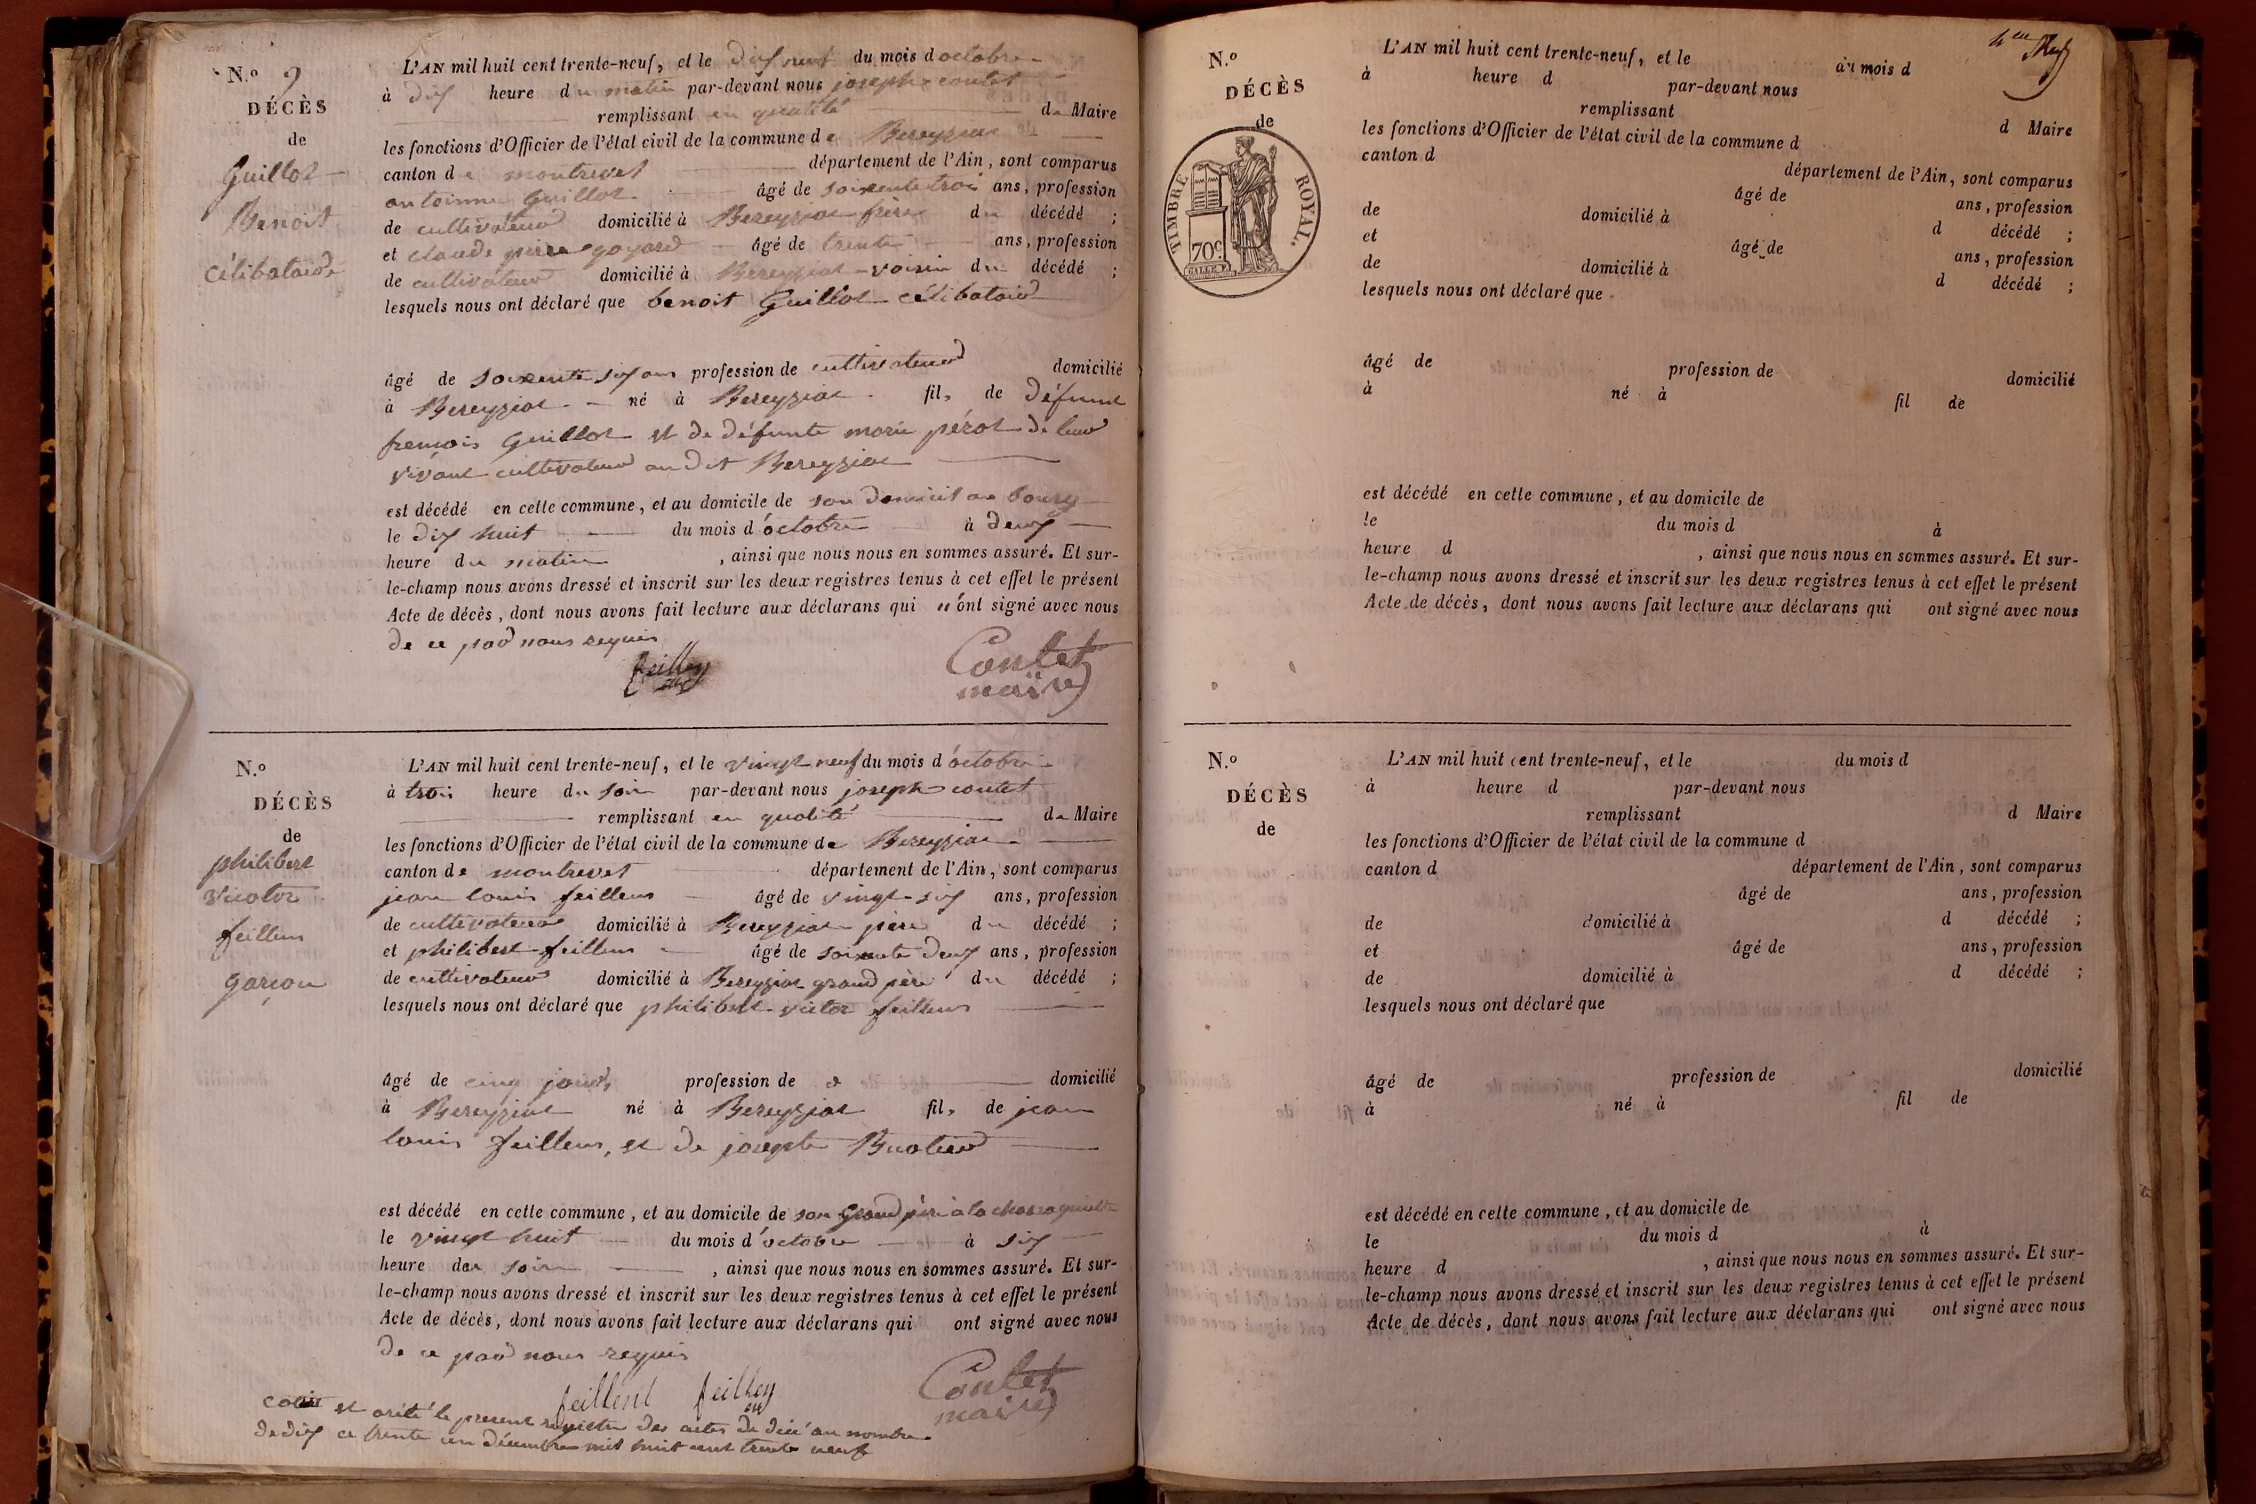 N.o 9
DÉCÈS
de
Guillot
Benoit
célibataire
L'AN mil huit cent trente-neuf, et le dix huit du mois d octobre
à dix heure du matin par-devant nous joseph contet
remplissant en qualité de Maire
les fonctions d'Officier de l'état civil de la commune de Bereyziat
canton de montrevet département de l'Ain, sont comparus
antoinne Guillot âgé de soixente trois ans, profession
de cultivateur domicilié à Bereyziat frère du décédé ;
et claude pierre goyard âgé de trente ans, profession
de cultivateur domicilié à Bereyziat voisin du décédé ;
lesquels nous ont déclaré que benoit Guillot célibataire
âgé de soixente six ans profession de cultivateur domicilié
à Bereyziat né à Bereyziat fils de défunt
frencois Guillot et de défunte marie pérot de leur
vivant cultivateur au dit Bereyziat
est décédé en cette commune, et au domicile de son domicil au bourg
le dix huit du mois d'octobre à deux
heure du matin , ainsi que nous nous en sommes assuré. Et sur-
le-champ nous avons dressé et inscrit sur les deux registres tenus à cet effet le présent
Acte de décès, dont nous avons fait lecture aux déclarans qui n'ont signé avec nous
de ce par nous requis
Contet
maire
N.o
DÉCÈS
de
philibert
victor
feillens
garçon
L'AN mil huit cent trente-neuf, et le vingt neuf du mois d'octobre
à trois heure du soir par-devant nous joseph contet
remplissant en qualité de Maire
les fonctions d'Officier de l'état civil de la commune de Bereyziat
canton de montrevet département de l'Ain, sont comparus
jean louis feillens âgé de vingt-six ans, profession
de cultivateur domicilié à Bereyziat père du décédé ;
et philibert feillens âgé de soixente deux ans, profession
de cultivateur domicilié à Bereyziat grand père du décédé ;
lesquels nous ont déclaré que philibert victor feillens
âgé de cinq jours profession de domicilié
à Bereyziat né à Bereyziat fils de jean
louis feillens, et de josephte
est décédé en cette commune, et au domicile de son grand père à la
le vingt huit du mois d'octobre à six
heure du soir , ainsi que nous nous en sommes assuré. Et sur-
le-champ nous avons dressé et inscrit sur les deux registres tenus à cet effet le présent
Acte de décès, dont nous avons fait lecture aux déclarans qui ont signé avec nous
de ce par nous requis
feillens
Contet
maire
et arété le present registre des actes de décé au nombre
de dix ce trente un décembre mil huit cent trente neuf
N.o
DÉCÈS
de
TIMBRE ROYAL.
70c
L'AN mil huit cent trente-neuf, et le du mois d
à heure d par-devant nous
remplissant d Maire
les fonctions d'Officier de l'état civil de la commune d
canton d département de l'Ain, sont comparus
âgé de ans, profession
de domicilié à d décédé ;
et âgé de ans, profession
de domicilié à d décédé ;
lesquels nous ont déclaré que
âgé de profession de domicilié
à né à fil de
est décédé en cette commune, et au domicile de
le du mois d à
heure d , ainsi que nous nous en sommes assuré. Et sur-
le-champ nous avons dressé et inscrit sur les deux registres tenus à cet effet le présent
Acte de décès, dont nous avons fait lecture aux déclarans qui ont signé avec nous
N.o
DÉCÈS
de
L'AN mil huit cent trente-neuf, et le du mois d
à heure d par-devant nous
remplissant d Maire
les fonctions d'Officier de l'état civil de la commune d
canton d département de l'Ain, sont comparus
âgé de ans, profession
de domicilié à d décédé ;
et âgé de ans, profession
de domicilié à d décédé ;
lesquels nous ont déclaré que
âgé de profession de domicilié
à né à fil de
est décédé en cette commune, et au domicile de
le du mois d à
heure d , ainsi que nous nous en sommes assuré. Et sur-
le-champ nous avons dressé et inscrit sur les deux registres tenus à cet effet le présent
Acte de décès, dont nous avons fait lecture aux déclarans qui ont signé avec nous